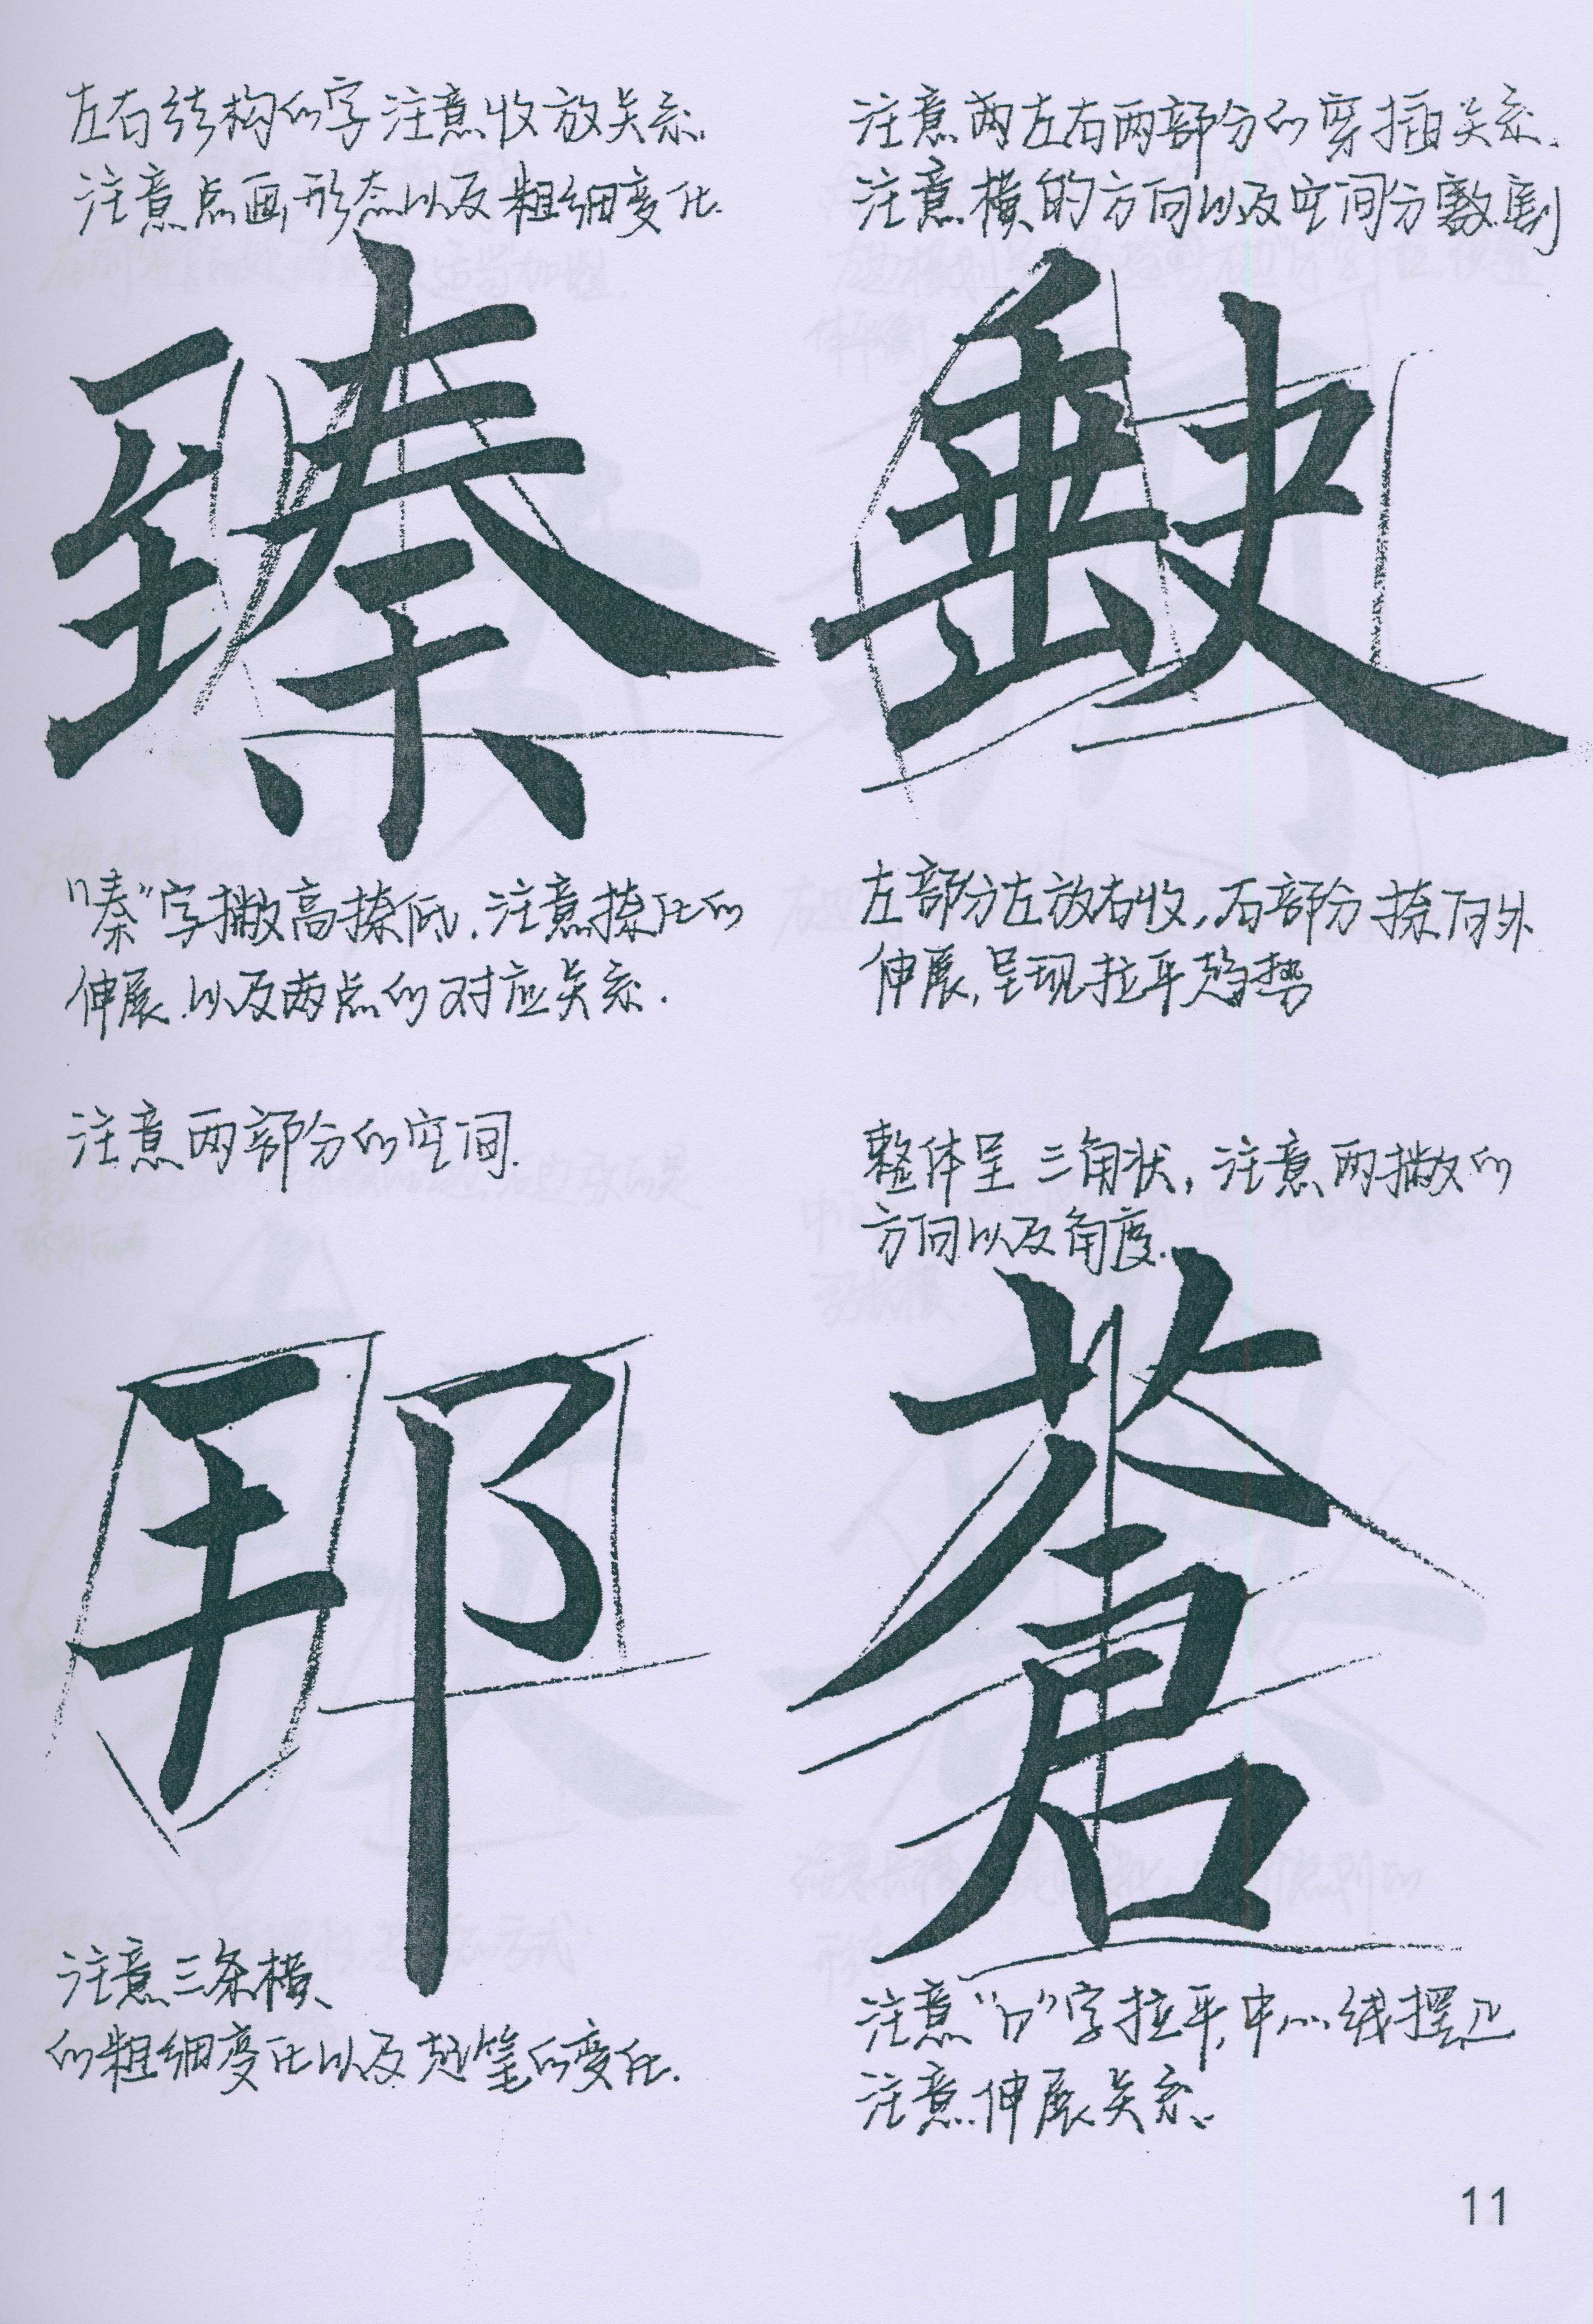 左右结构的字注意收放关系.
注意点画形态以及粗细变化.
臻
"秦"字撇高捺低.注意捺化的
伸展.以及两点的对应关系.
注意两左右两部分的穿插关系.
注意横的方向以及空间分割
左部分左放右收,右部分捺向外
伸展,呈现拉平趋势
注意两部分的空间.
邪
注意三条横、
的粗细变化以及起笔的变化.
整体呈三角状,注意两撇的
方向以及角度.
苍
注意"口"字拉平,中心线摆正
注意伸展关系.
11